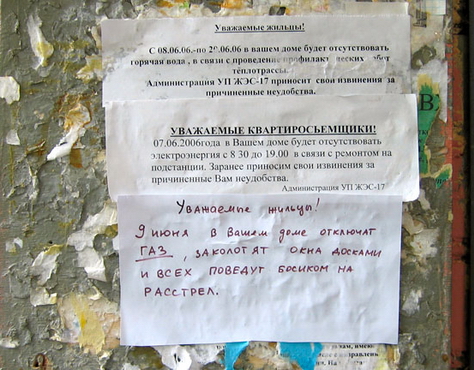 Уважаемые жильцы!
С 08.06.06.-по 29.06.06 в вашем доме будет отсутствовать
горячая вода , в связи с проведение профилактических работ
теплотрассы.
Администрация УП ЖЭС-17 приносит свои извинения за
причиненные неудобства.
УВАЖАЕМЫЕ КВАРТИРОСЬЕМЩИКИ!
07.06.2006года в Вашем доме будет отсутствовать
электроэнергия с 8 30 до 19.00 в связи с ремонтом на
подстанции. Заранее приносим свои извинения за
причиненные Вам неудобства.
Администрация УП ЖЭС-17
В
Уважаемые жильцы!
9 июня в Вашем доме отключат
ГАЗ , заколотят окна досками
и всех поведут босиком на
расстрел.